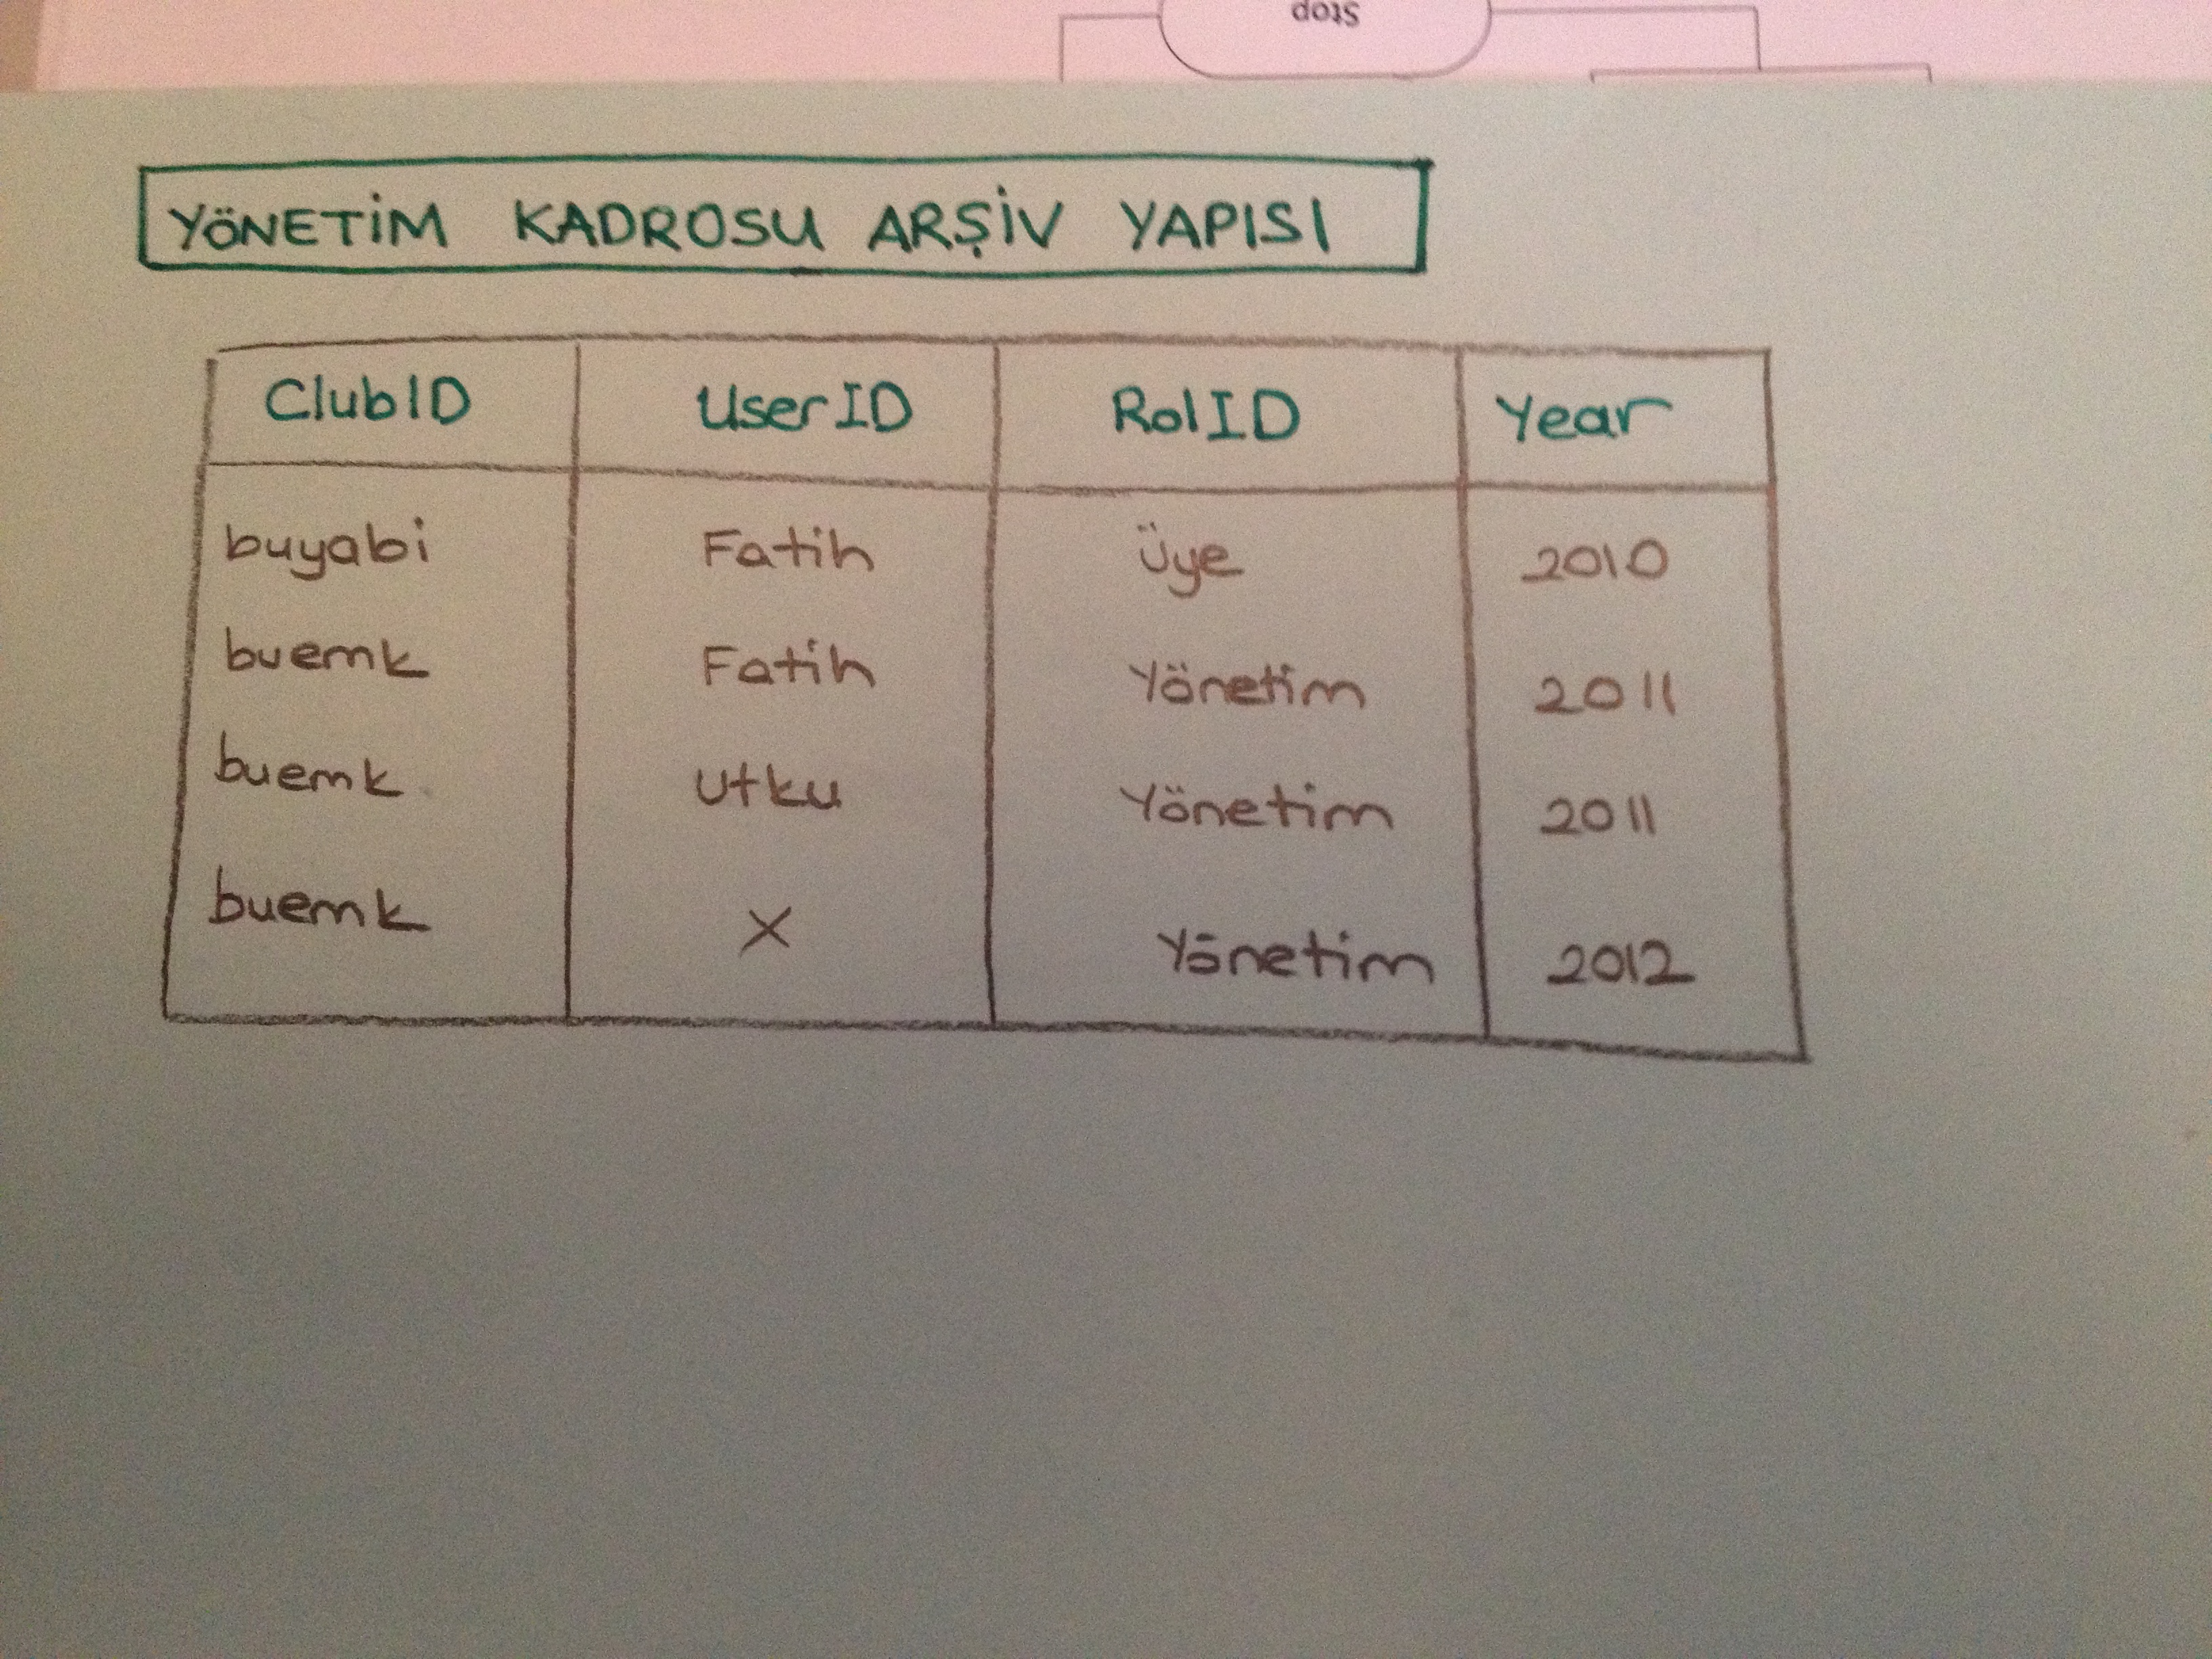 Stop
YÖNETİM KADROSU ARŞİV YAPISI
ClubID UserID RolID Year
buyabi Fatih Üye 2010
buemk Fatih Yönetim 2011
buemk Utku Yönetim 2011
buemk X Yönetim 2012